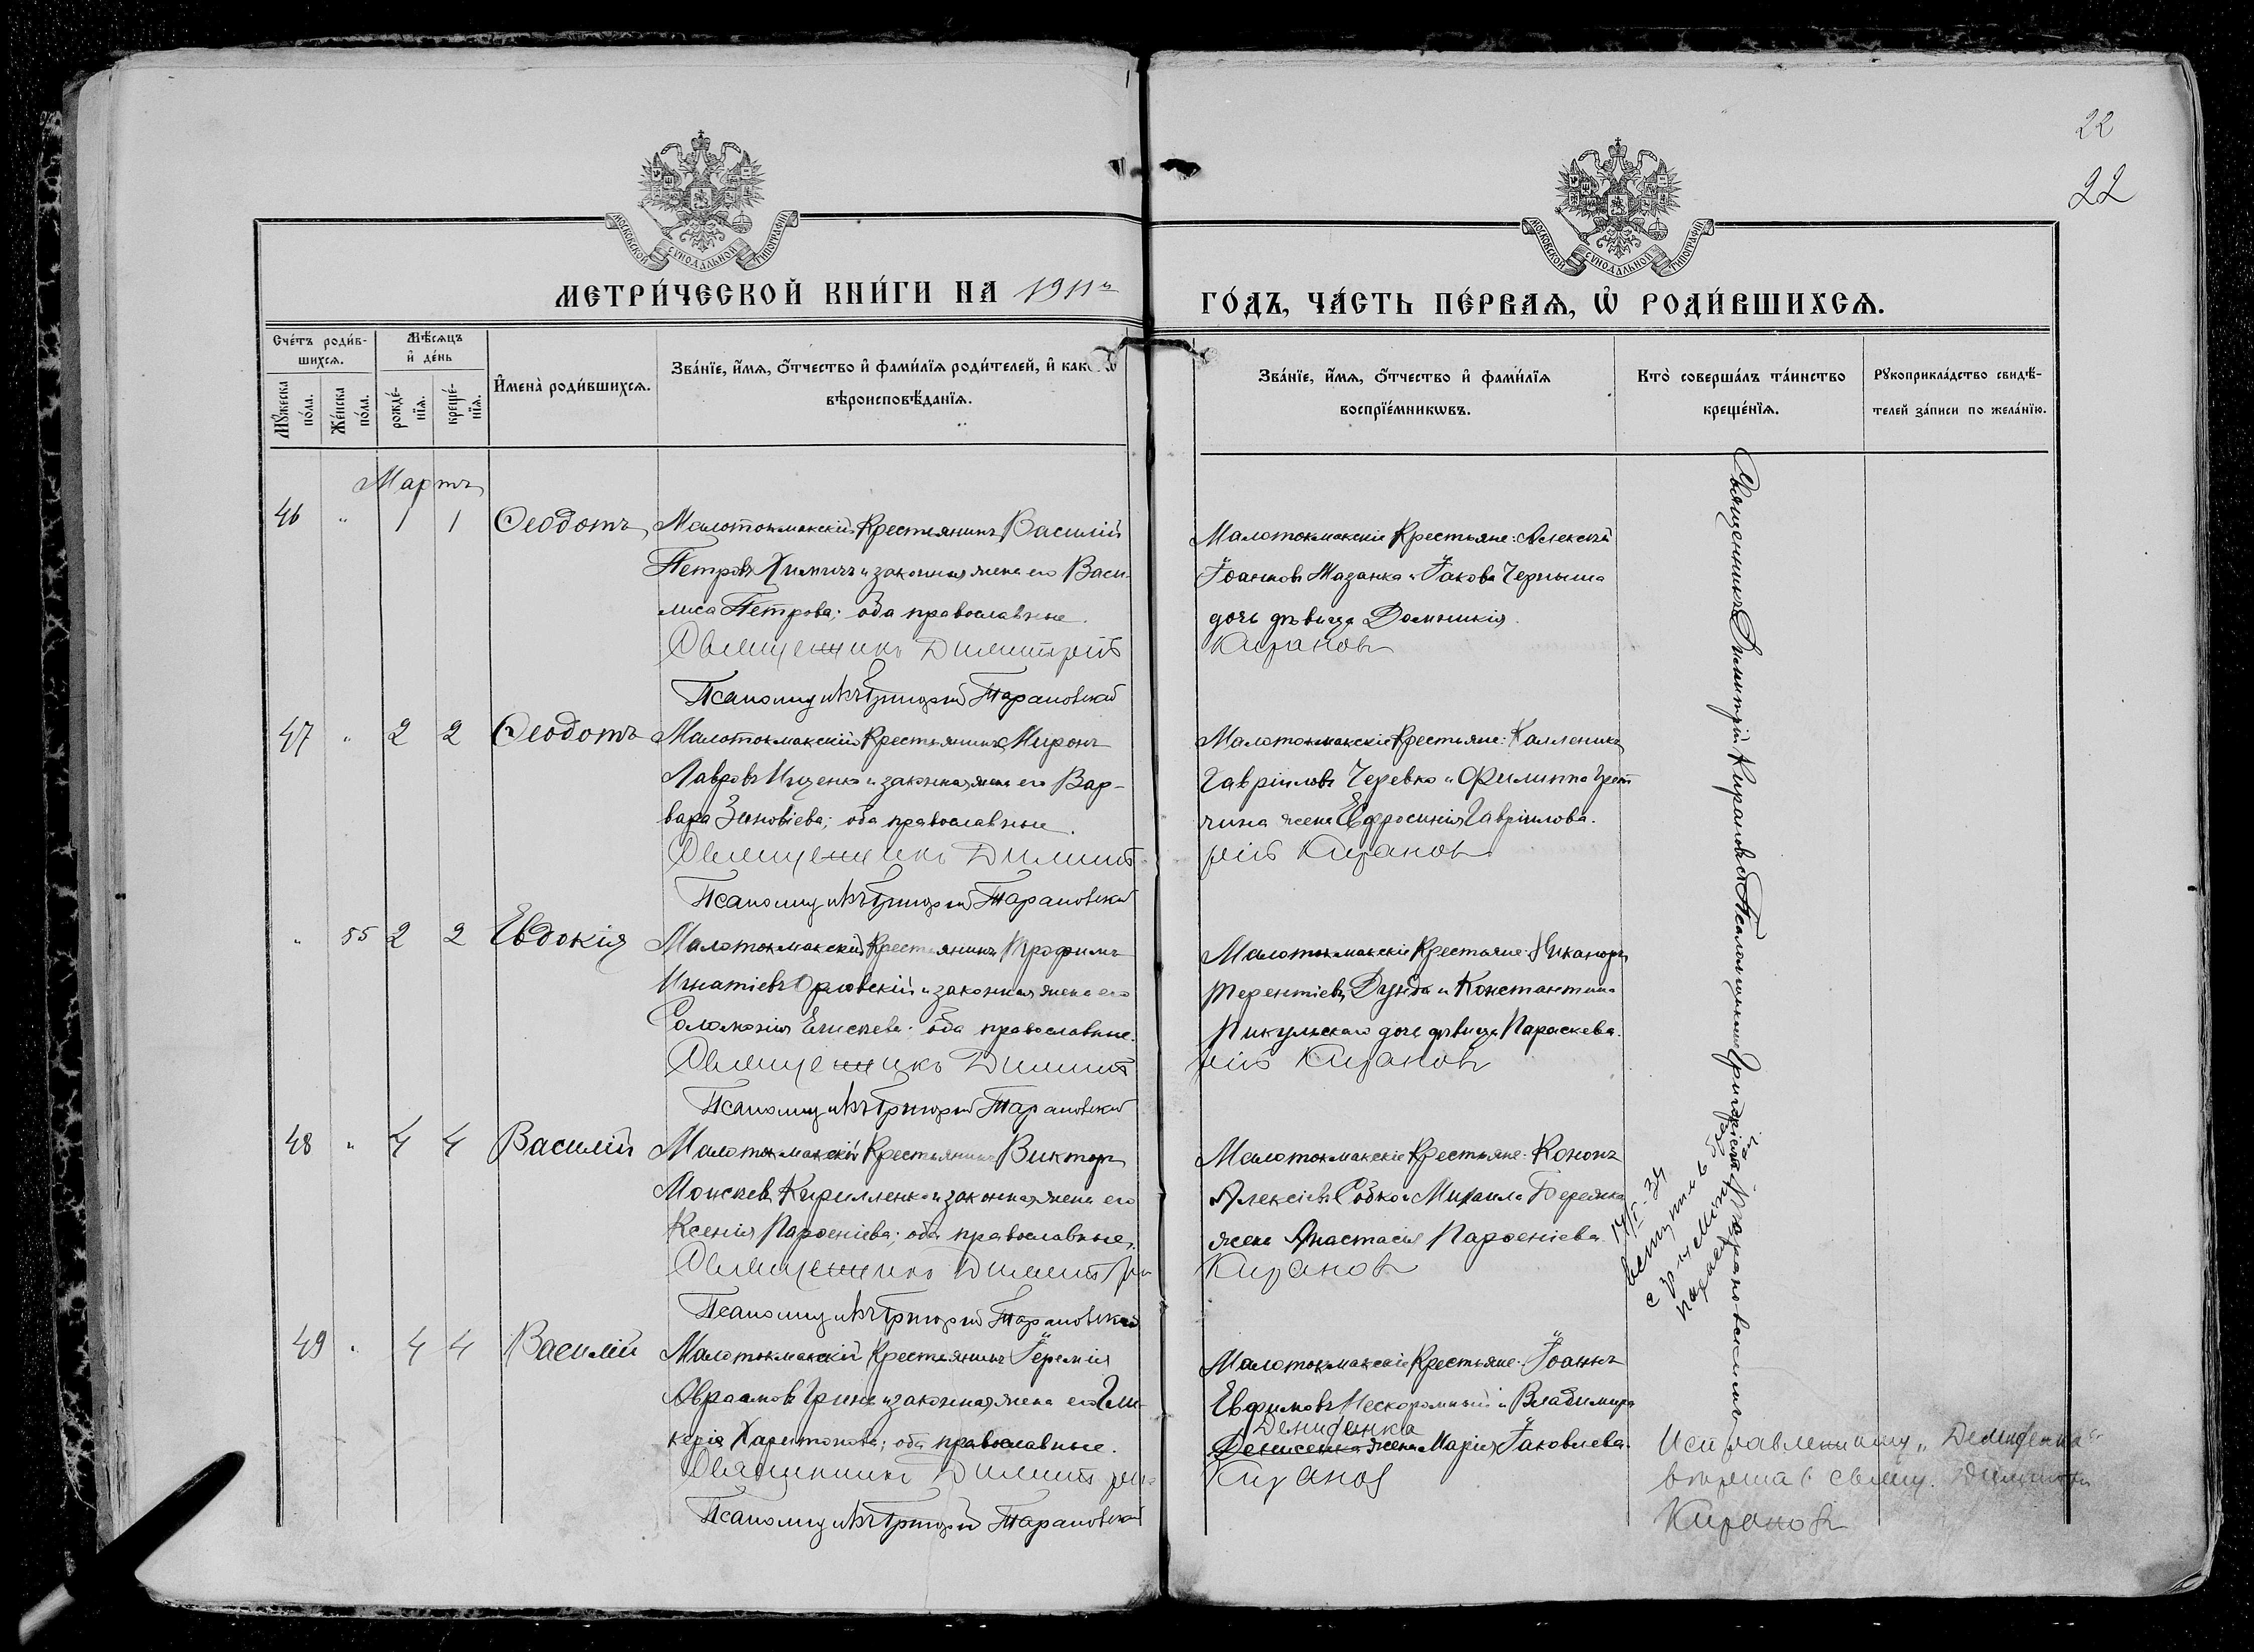 22
22
МОСКОВСКОЙ СѴНОДАЛЬНОЙ ТИПОГРАФІИ
МОСКОВСКОЙ СѴНОДАЛЬНОЙ ТИПОГРАФІИ
МЕТРИ́ЧЕСКОЙ КНИ́ГИ НА 1911й
ГО́ДЪ, ЧА́СТЬ ПЕ́РВАѦ, Ѡ҆ РОДИ́ВШИХСѦ.
Сче́тъ роди́в-
шихсѧ.
Мꙋ́жеска по́ла.
Же́нска по́ла.
Мѣ́сѧцъ
и҆ де́нь
рожде́-
нїѧ.
креще́-
нїѧ.
И҆мена̀ роди́вшихсѧ.
Зва́нїе, и҆́мѧ, ѻ҆́тчество и҆ фами́лїѧ роди́телей, и҆ как
вѣроисповѣ́данїѧ.
Зва́нїе, и҆́мѧ, ѻ҆́тчество и҆ фами́лїѧ
воспрїе́мникѡвъ.
Кто̀ соверша́лъ та́инство
креще́нїѧ.
Рꙋкоприкла́дство свидѣ́-
телей за́писи по жела́нїю.
Мартъ
46 " 1 1 Ѳеодотъ Малотокмакскій Крестьянинъ Василій
Петровъ Химичъ и законная жена его Васи-
лиса Петрова; оба православные.
Священникъ Димитрій
Псаломщикъ Григорій Тарановскій
Малотокмакскіе Крестьяне: Алексѣй
Іоанновъ Мазанка и Іакова Черныша
дочь дѣвица Домникія.
Киранов
47 " 2 2 Ѳеодотъ Малотокмакскій Крестьянинъ Миронъ
Лавровъ Ищенко и законная жена его Вар-
вара Зиновіева; оба православные.
Священникъ Димит
Псаломщикъ Григорій Тарановскій
Малотокмакскіе Крестьяне: Каллиникъ
Гавріиловъ Черевко и Филиппа Греб
чина жена Евфросинія Гавріилова.
рій Киранов
" 55 2 2 Евдокія Малотокмакскій Крестьянинъ Трофимъ
Игнатіевъ Орловскій и законная жена его
Соломонія Елисѣева; оба православные.
Священникъ Димит
Псаломщикъ Григорій Тарановскій
Малотокмакскіе Крестьяне: Никаноръ
Терентіевъ Дунда и Константина
Пикульскаго дочь дѣвица Параскева.
рій Киранов
48 " 4 4 Василій Малотокмакскій Крестьянинъ Викторъ
Моисеевъ Кирилленко и законная жена его
Ксенія Парѳеніева; оба православные.
Священникъ Димитри
Псаломщикъ Григорій Тарановскій
Малотокмакскіе Крестьяне: Кононъ
Алексіевъ Собко и Михаила Бережка
жена Анастасія Парѳеніева
Киранов
49 " 4 4 Василій Малотокмакскій Крестьянинъ Іеремія
Авраамовъ Гринь и законная жена его Гли-
керія Харитонова; оба православные.
Священникъ Димитри
Псаломщикъ Григорій Тарановскій
Малотокмакскіе Крестьяне: Іоаннъ
Евфимовъ Нескоромный и Владимира
Демиденка
Денисенка жена Марія Іаковлева.
Киранов
Священникъ Димитрій Кирановъ съ Псаломщикомъ Григоріемъ Тарановскимъ
вступил в
Исправленному „Демиденка"
вѣрить свящ. Димитрій
Киранов